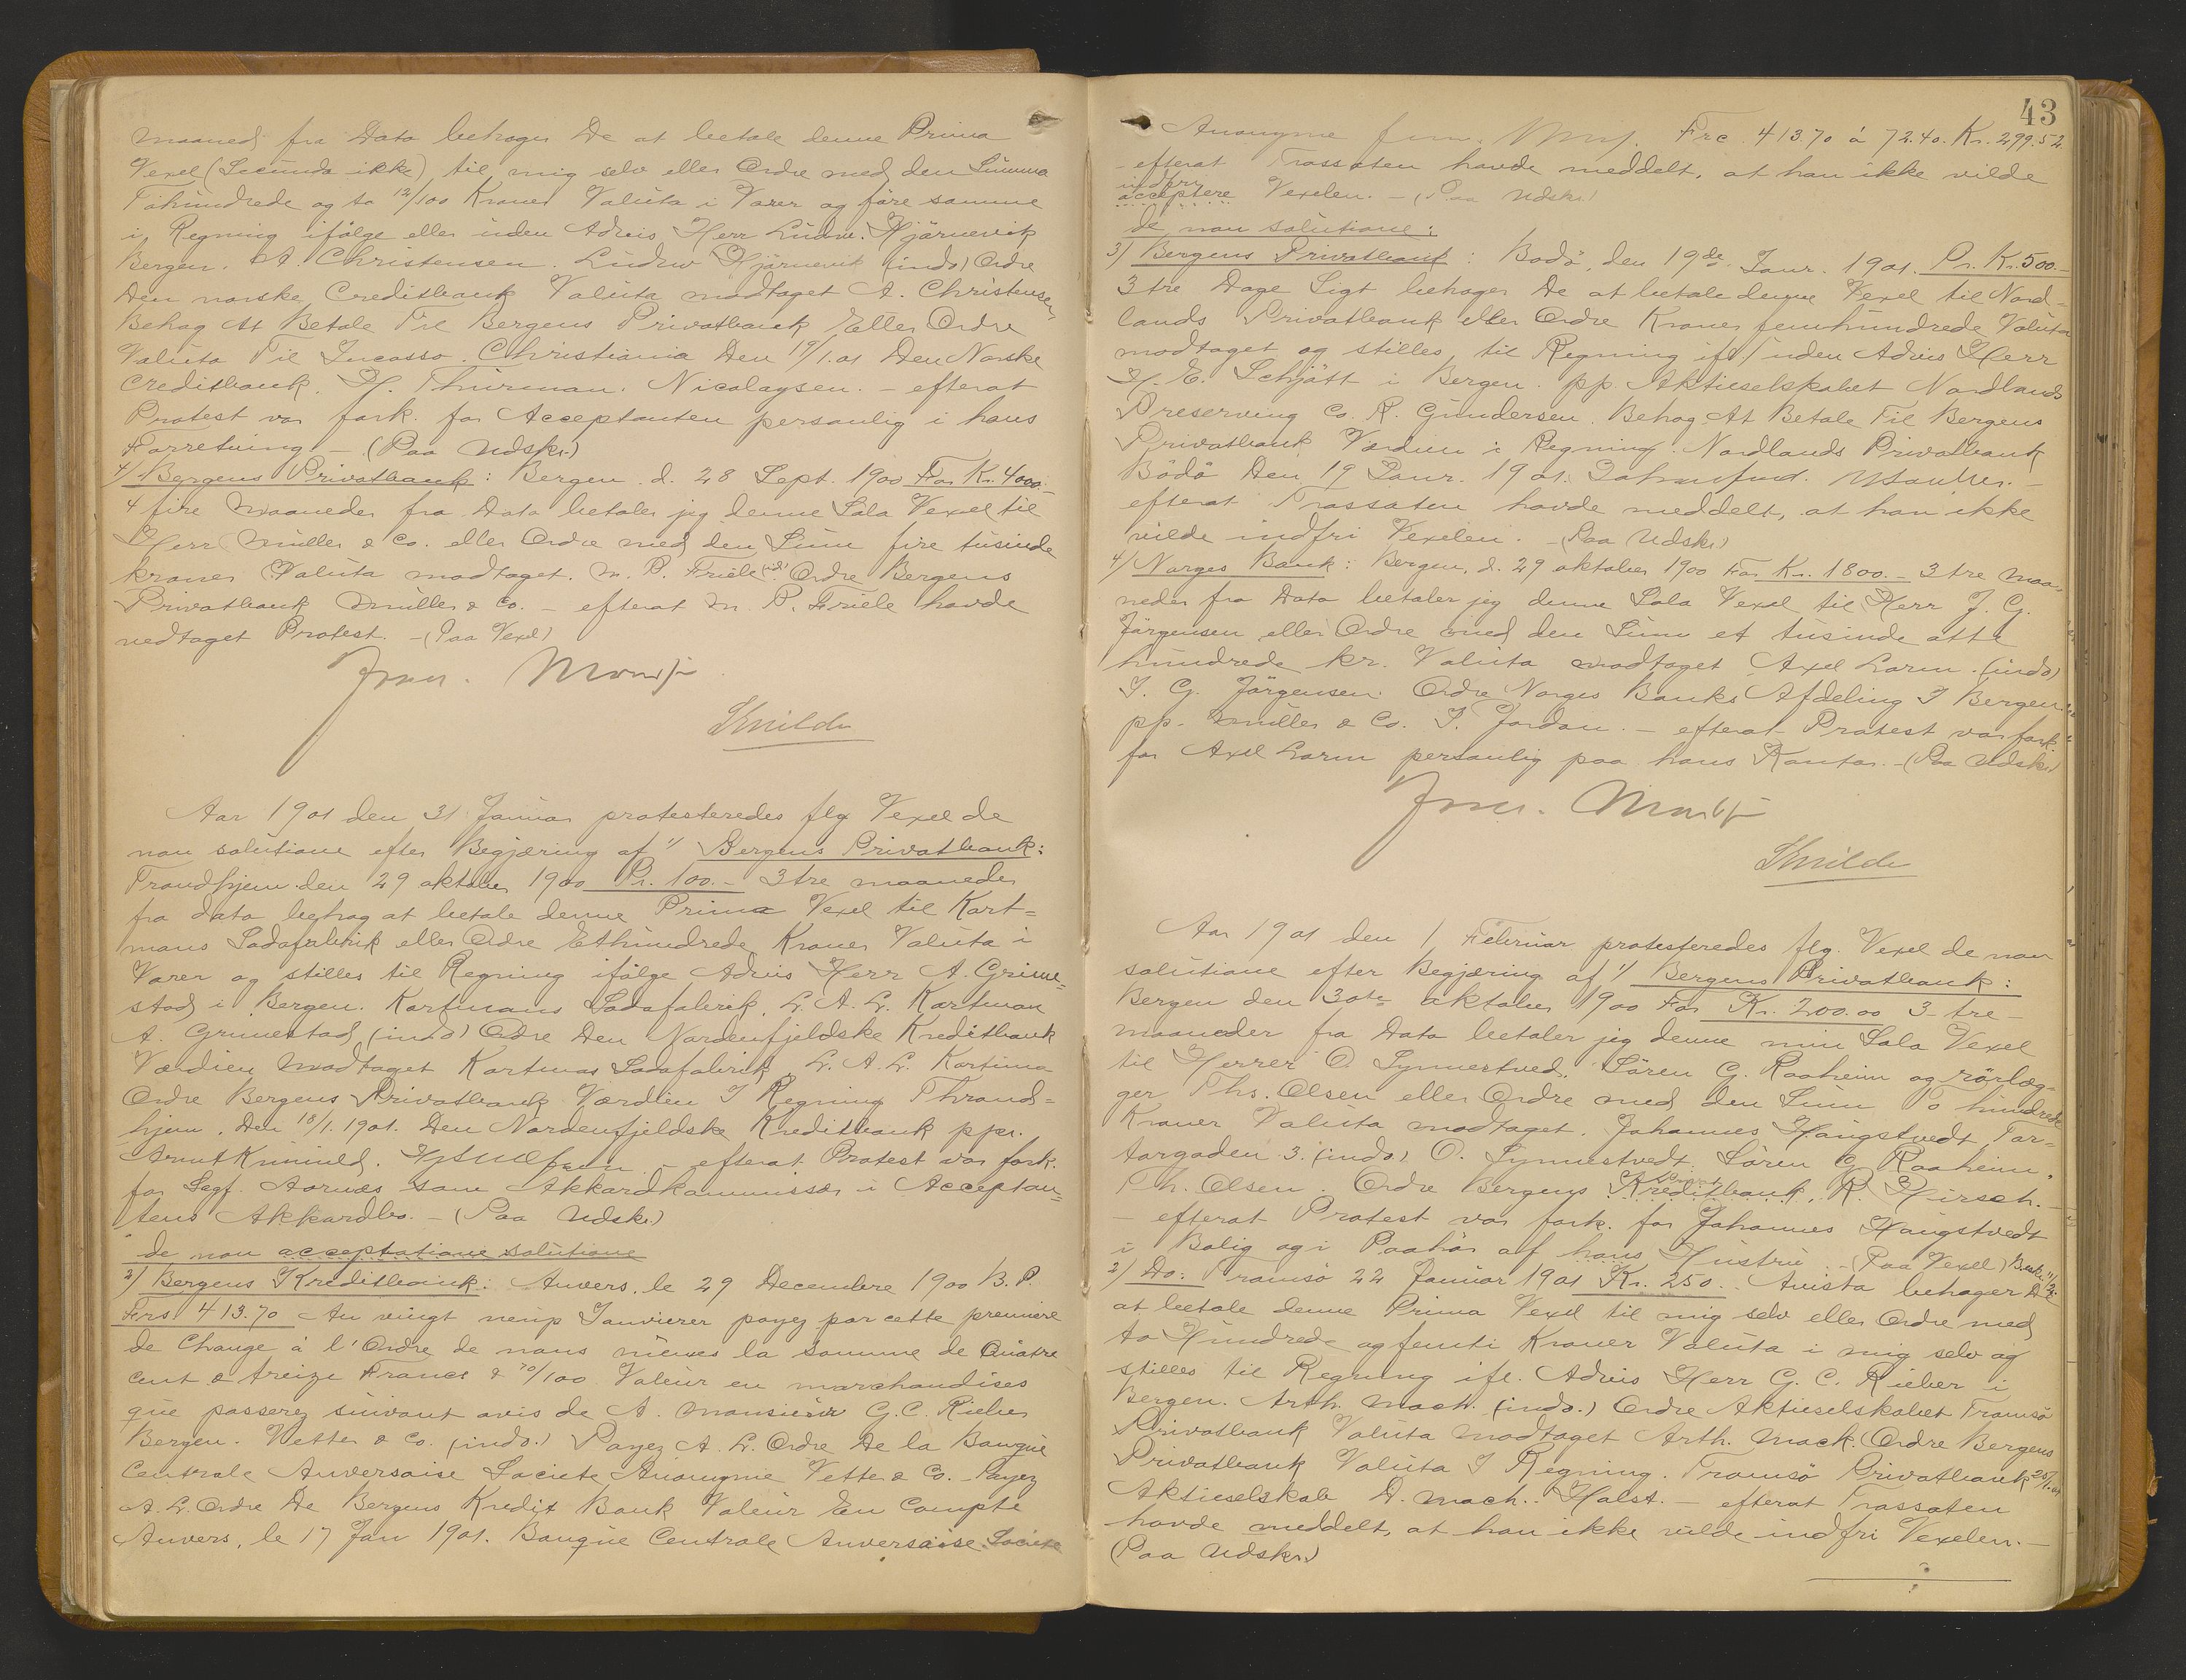 maaned fra Dato behager De at betale denne Prima
Vexel (Secunda ikke) til mig selv eller Ordre med den Summa
Tohundrede og to 12/100 Kroner Valuta i Varer og före samme
i Regning ifölge eller uden Advis Herr Ludw. Hjörnevik
Bergen. A Christensen Ludw Hjörnevik (indo) Ordre
Den norske Creditbank Valuta modtaget A. Christensen
Behag At Betale Til Bergens Privatbank Eller Ordre
Valuta Til Incasso. Christiania Den 19/1.01 Den Norske
Creditbank. H. Thurman. Nicolaysen. – efterat
Protest var fork. for Acceptanten personlig i hans
Forretning – (Paa Udskr.)
4/ Bergens Privatbank: Bergen d. 28 Sept. 1900 For Kr. 4000.–
4 fire Maaneder fra Dato betaler jeg denne Sola Vexel til
Herr Müller & Co. eller Ordre med den Sum fire tusinde
kroner Valuta modtaget. M. P. Friele (ind) Ordre Bergens
Privatbank Müller & Co. – efterat M. P. Friele havde
vedtaget Protest. – (Paa Vexel)
Smilde
Aar 1901 den 31 Januar protesteredes flg Vexel de
non solutione efter Begjæring af 1/ Bergens Privatbank:
Trondhjem den 29 oktober 1900 Pr. 100.– 3 tre maaneder
fra dato behag at betale denne Prima Vexel til Kort=
mans Sodafabrik eller Ordre Ethundrede Kroner Valuta i
Varer og stilles til Regning ifölge Advis Herr A. Grime=
stad i Bergen. Kortmans Sodafabrik. L. A. L. Kortman
A. Grimestad (indo) Ordre Den Nordenfjeldske Kreditbank
Værdien Modtaget Kortmas Sodafabrik L. A. L. Kortma
Ordre Bergens Privatbank Værdien I Regning Thrond=
hjem. Den 18/1. 1901. Den Nordenfjeldske Kreditbank ppr.
– efterat Protest var fork.
for Sagf. Aornæs som Akkordkommissær i Acceptan=
tens Akkordbo. – (Paa Udskr.)
de non acceptatione solutione
2/ Bergens Kreditbank: Anvers, le 29 Decembre 1900 B. P.
Frs 413.70 Au vingt neup Janvierer payez par cette premiere
de Change à l'Ordre de nous mèmes la somme de Quatre
cent & treize Francs & 70/100 Valeur en marchandises
que passerez suivant avis de A. Monsieur G. C. Rieber
Bergen. Vetter & Co. (indo.) Payez A. L. Ordre De la Banque
Centrale Anversoise Societe Anonyme Vetter & Co. – Payez
A. L. Ordre De Bergens Kredit Bank Valeur En Compte
Anvers, le 17 Jan 1901. Banque Centrale Anversoise Societe
43
Anonyme Frc. 413.70 à 72.40. Kr. 299.52
– efterat Trassaten havde meddelt, at han ikke vilde
indfri
acceptere Vexelen. – (Paa Udskr.)
de non solutione:
3/ Bergens Privatbank: Bodö, den 19de Janr. 1901. Pr. Kr. 500.–
3 tre Dage Sigt behager De at betale denne Vexel til Nord=
lands Privatbank eller Ordre Kroner femhundrede Valuta
modtaget og stilles til Regning ifl./uden Advis Herr
H. E. Schjött i Bergen. pp. Aktieselskabet Nordlands
Preserving Co. R. Gundersen. Behag At Betale Til Bergens
Privatbank Værdien i Regning. Nordlands Privatbank
Bodö Den 19 Janr. 1901.
efterat Trassaten havde meddelt, at han ikke
vilde indfri Vexelen. – (Paa Udskr.)
4/ Norges Bank: Bergen, d. 29 oktober 1900 For Kr. 1800.– 3 tre Maa=
neder fra Dato betaler jeg denne Sola Vexel til Herr J. G.
Jörgensen eller Ordre med den Sum et tusinde otte
hundrede kr. Valuta modtaget Axel Lorm. (indo)
J. G. Jörgensen. Ordre Norges Banks Afdeling I Bergen.
pp. Müller & Co. J. Jordan. – efterat Protest var fork.
for Axel Lorm personlig paa hans Kontor. – (Paa Udskr.)
Smilde
Aar 1901 den 1 Februar protesteredes flg. Vexel de non
solutione efter Begjæring af 1/ Bergens Privatbank:
Bergen den 30te oktober 1900 For Kr. 200.00 3– tre –
maaneder fra Dato betaler jeg denne min Sola Vexel
til Herrer O. Synnestved, Sören G. Raaheim og rörlæg=
ger Ths. Olsen eller Ordre med den Sum To hundrede
Kroner Valuta modtaget. Johannes Haugstvedt, Tor=
torgaden 3. (indo) O. Synnestvedt. Sören G. Raaheim.
Th. Olsen. Ordre Bergens Kreditbank, R. Hirsch. –
– efterat Protest var fork. for Johannes Haugstvedt
i Bolig og i Paahör af hans Hustru – (Paa Vexel)
2/ Do: Tromsö 22 Januar 1901 Kr. 250. Avista behager De
at betale denne Prima Vexel til mig selv eller Ordre med
to Hundrede og femti Kroner Valuta i mig selv og
stilles til Regning ifl. Advis Herr G. C. Rieber i
Bergen. Arth. Mack. (indo.) Ordre Aktieselskabet Tromsö
Privatbank Valuta Modtaget Arth. Mack. Ordre Bergens
Privatbank Valuta I Regning. Tromsö Privatbank 25/1.01
Aktieselskab D. Mach. Holst. efterat Trassaten
havde meddelt, at han ikke vilde indfri Vexelen. –
(Paa Udskr.)